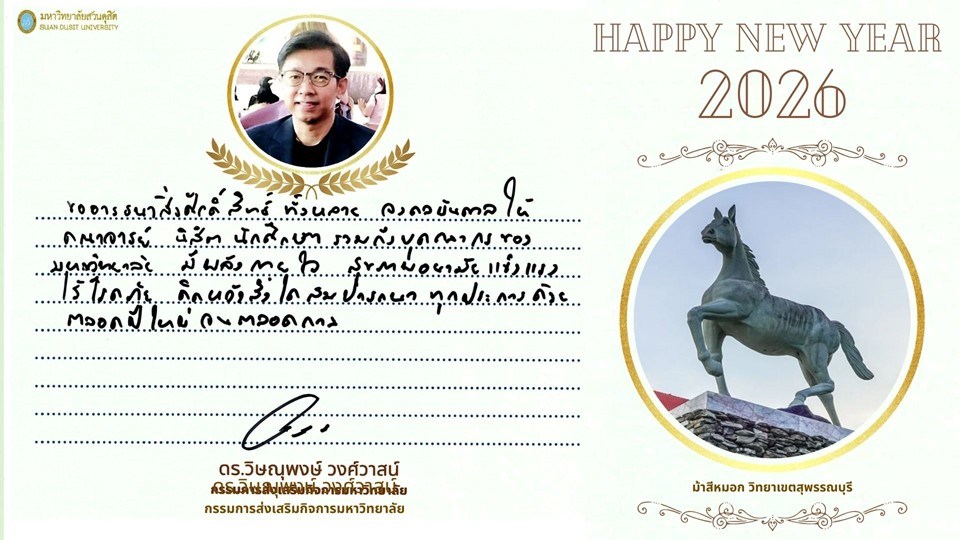 มหาวิทยาลัยสวนดุสิต
SUAN DUSIT UNIVERSITY
HAPPY NEW YEAR
2026
ขออาราธนาสิ่งศักดิ์สิทธิ์ ทั้งหลาย จงดลบันดาลให้
คณาจารย์ นิสิต นักศึกษา รวมถึงบุคลากรของ
มหาวิทยาลัย มีพลังกายใจ สุขภาพอนามัยแข็งแรง
ไร้โรคภัย คิดหวังสิ่งใดสมปรารถนาทุกประการด้วย
ตลอดปีใหม่ จนตลอดกาล
ดร.วิษณุพงษ์ วงศ์วาสน์
ดร.วิษณุพงษ์ วงศ์วาสน์
กรรมการส่งเสริมกิจการมหาวิทยาลัย
กรรมการส่งเสริมกิจการมหาวิทยาลัย
ม้าสีหมอก วิทยาเขตสุพรรณบุรี